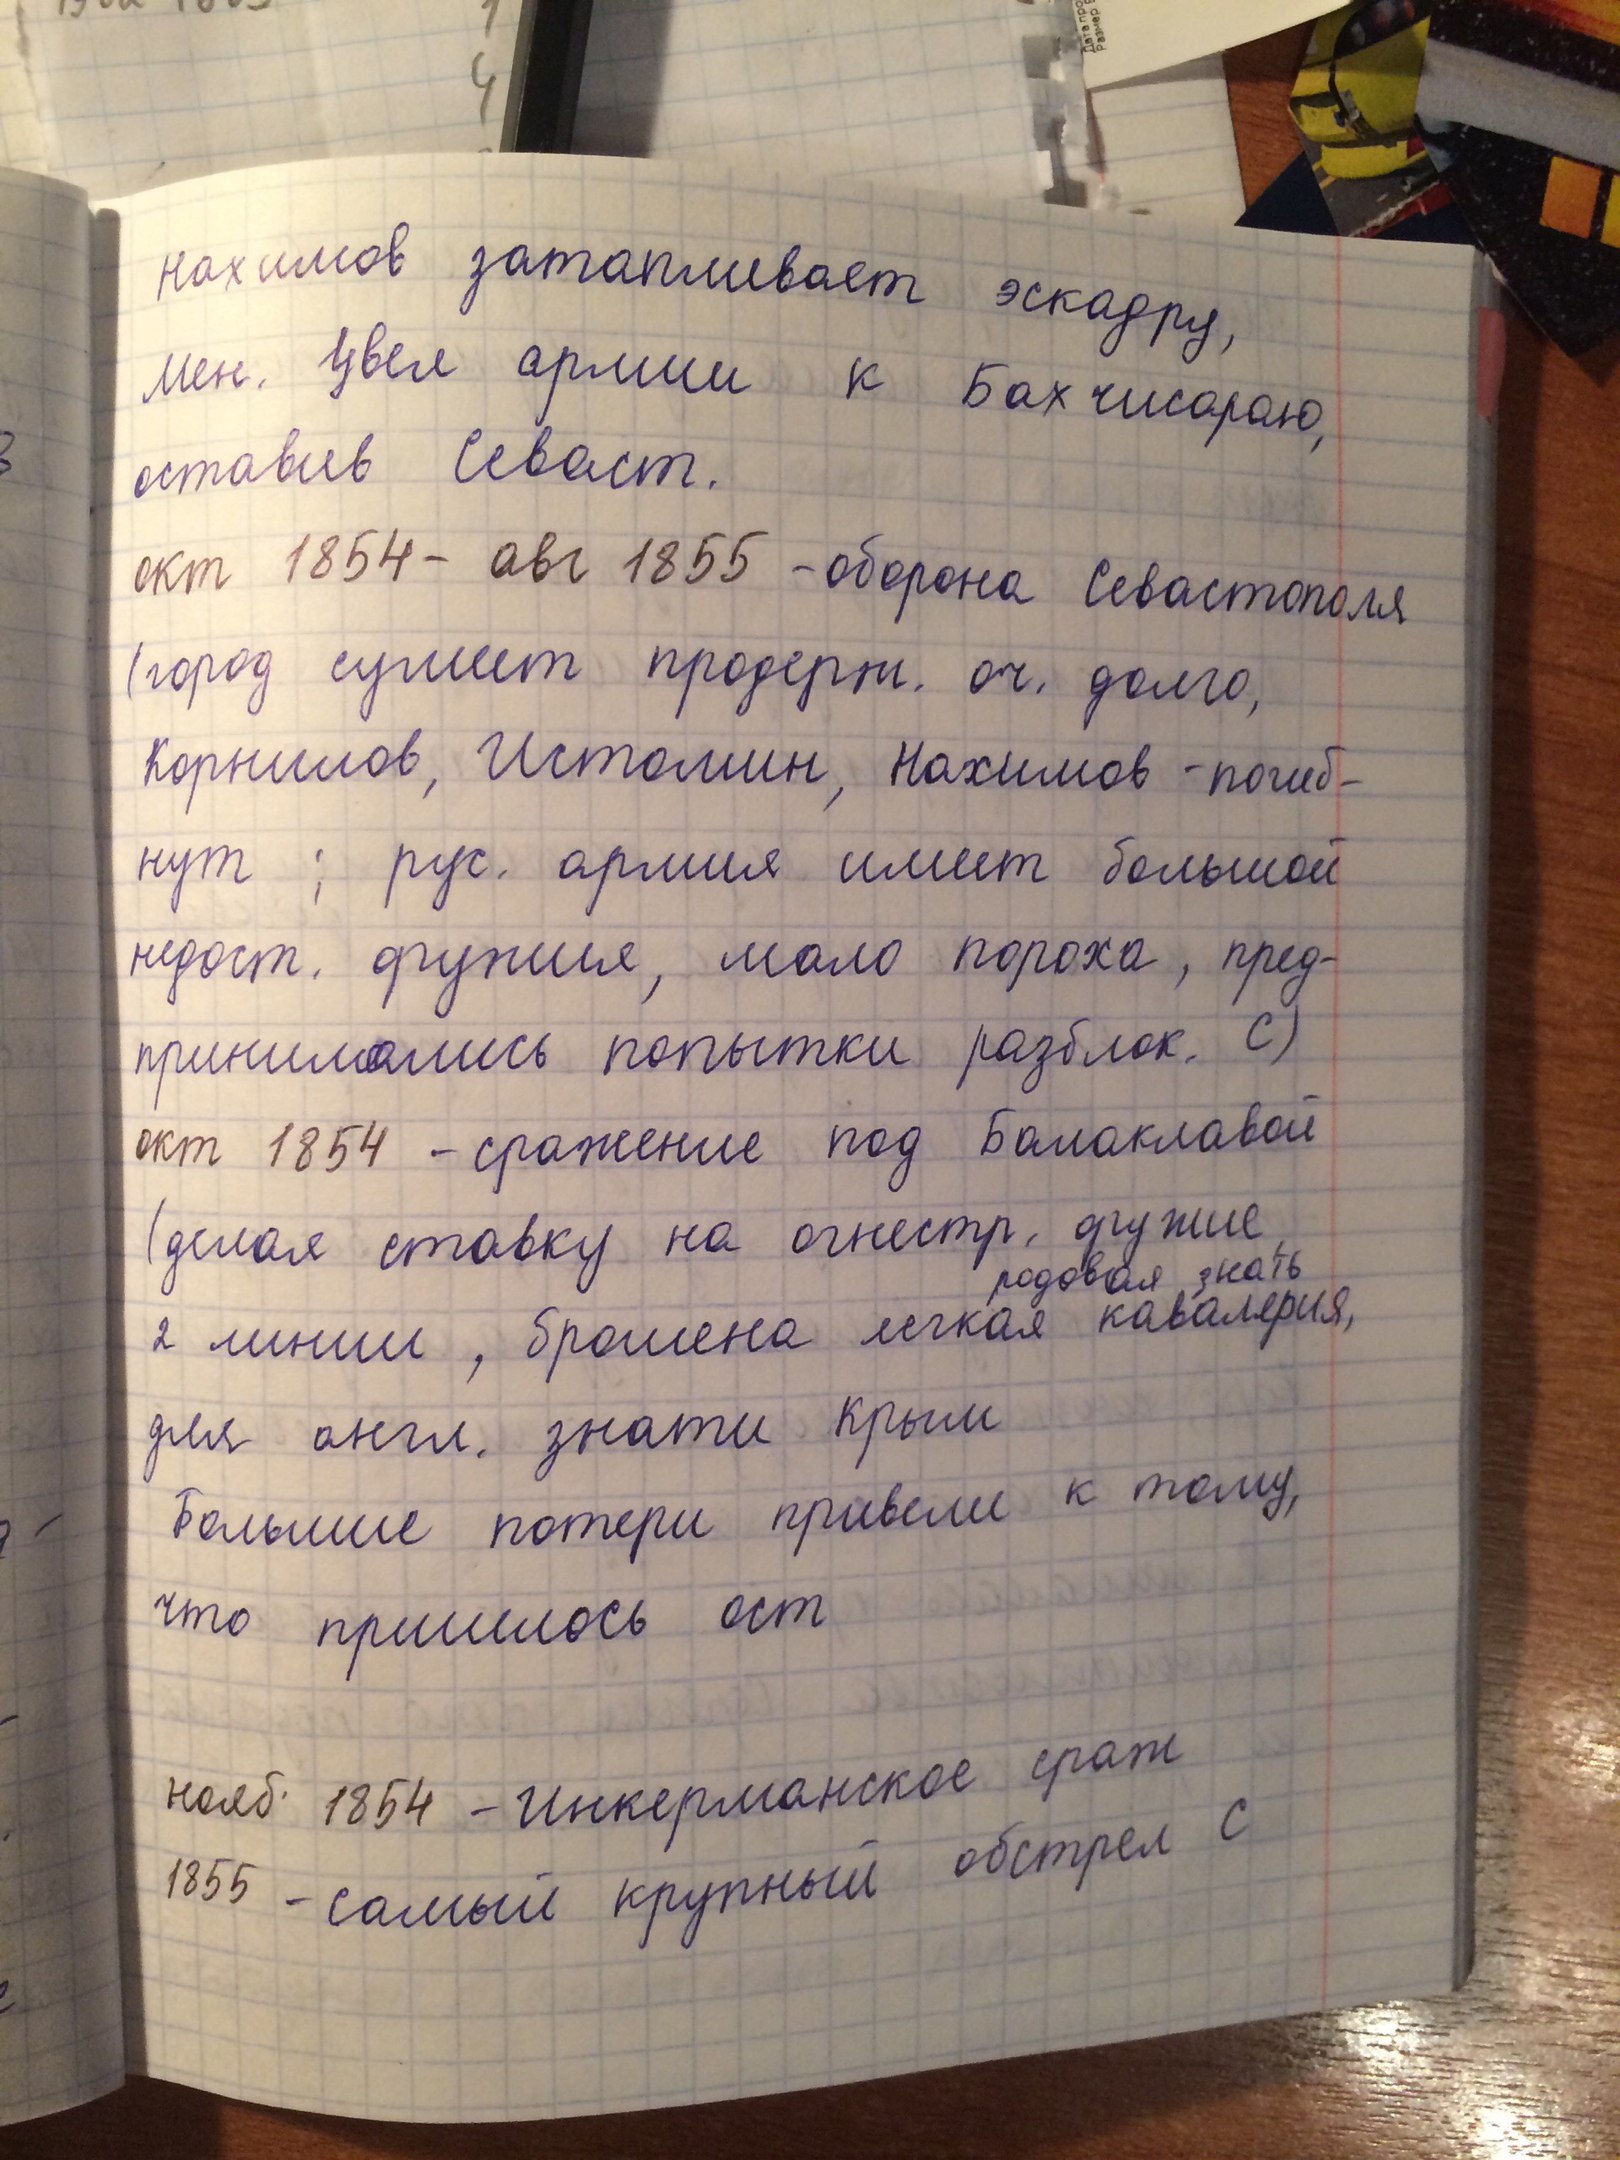 Нахимов затапливает эскадру,
Мен. увел армии к Бахчисараю,
оставив Севаст.
окт 1854 - авг 1855 - оборона Севастополя
(город сумеет продерж. оч. долго,
Корнилов, Истомин, Нахимов - погиб-
нут ; рус. армия имеет большой
недост. оружия, мало пороха, пред-
принимались попытки разблок. С)
окт 1854 - сражение под Балаклавой
(делая ставку на огнестр. оружие,
родовая знать
2 линии, брошена легкая кавалерия,
для англ. знати Крым
Большие потери привели к тому,
что пришлось ост
нояб. 1854 - Инкерманское сраж
1855 - самый крупный обстрел С